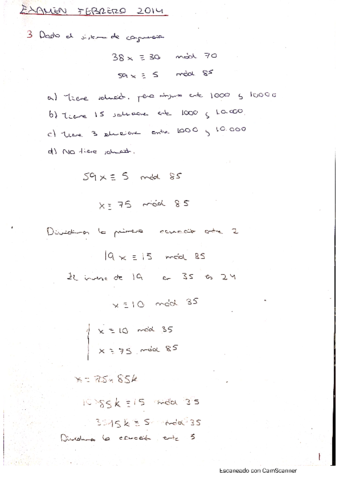 EXAMEN FEBRERO 2014
3 Dado el sistema de congruencias
38x ≡ 30 mód 70
59x ≡ 5 mód 85
a) Tiene soluc. pero alguna ente 1000 y 10000
b) Tiene 15 soluciones ente 1000 y 10.000
c) Tiene 3 soluciones entre 1000 y 10.000
d) No tiene soluc.
59x ≡ 5 mód 85
x ≡ 75 mód 85
Dividimos la primera ecuación entre 2
19x ≡ 15 mód 35
El inverso de 19 en 35 es 24
x ≡ 10 mód 35
x ≡ 10 mód 35
x ≡ 75 mód 85
x = 75 + 85k
85k ≡ 15 mód 35
15k ≡ 5 mód 35
Dividimos la ecuación ente 5
1
Escaneado con CamScanner